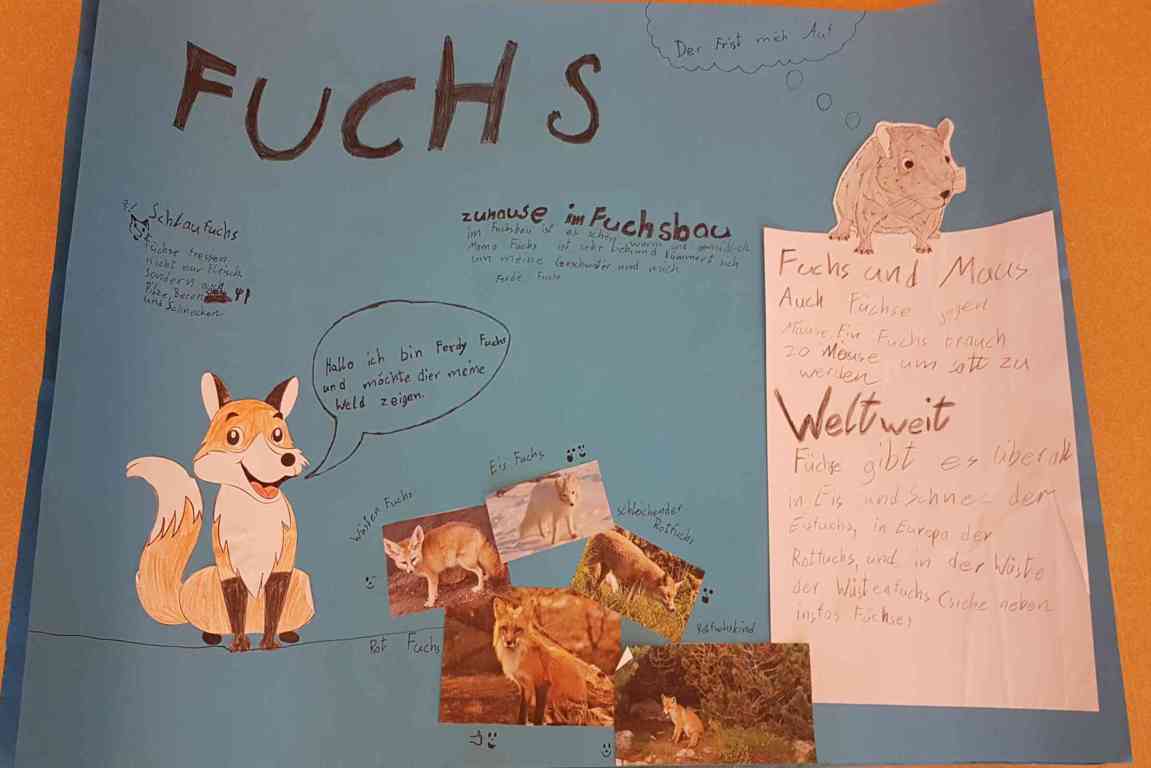 FUCHS
Der Frist mich Auf
Schlaufuchs
Füchse fressen
nicht nur Fleisch
sondern auch
Pilze, Beeren
und Schnecken
zuhause im Fuchsbau
im Fuchsbau ist es schön warm und gemütlich
Mama Fuchs ist sehr lieb und kümmert sich
um meine Geschwister und mich
Fuchs
Hallo ich bin Ferdy Fuchs
und möchte dier meine
Weld zeigen.
Fuchs und Maus
Auch Füchse jagen
Mäuse. Ein Fuchs brauch
20 Mäuse um satt zu
werden
Weltweit
Füchse gibt es überall
in Eis und Schnee der
in Europa der
Rotfuchs, und in der Wüste
der Wüstenfuchs (siehe neben
Füchse)
Eis Fuchs
Wüsten Fuchs
schleichender
Rotfuchs
Rot Fuchs
Rotfuchskind